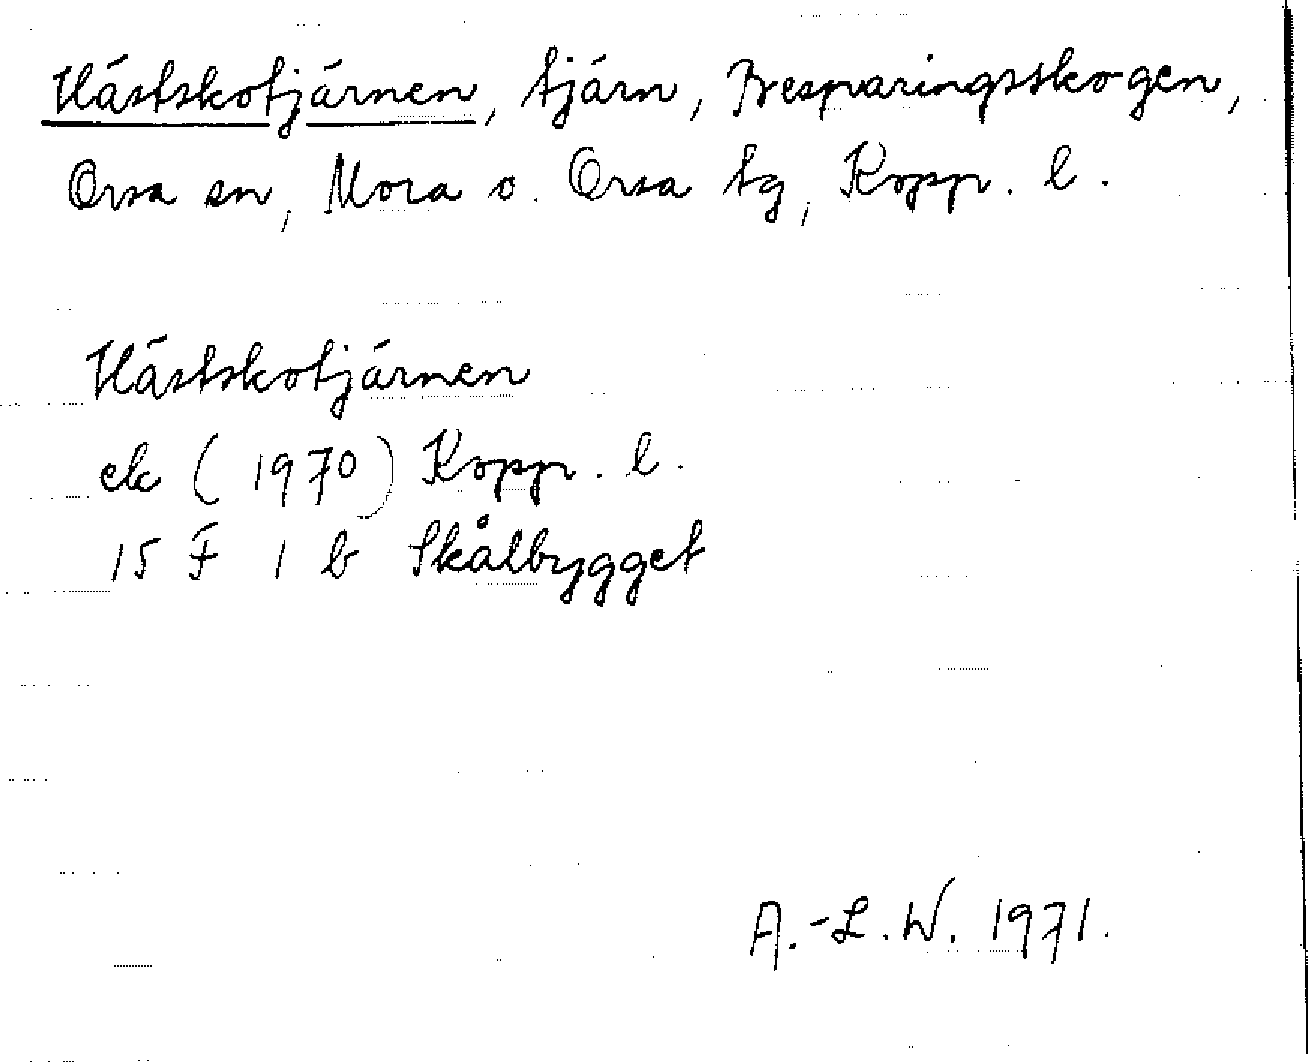 Hästskotjärnen, tjärn, Besparingsskogen,
Orsa sn, Mora o. Orsa tg, Kopp. l.
Hästskotjärnen
ek (1970) Kopp. l.
15 F 1 b Skålbygget
A.-L.W. 1971.